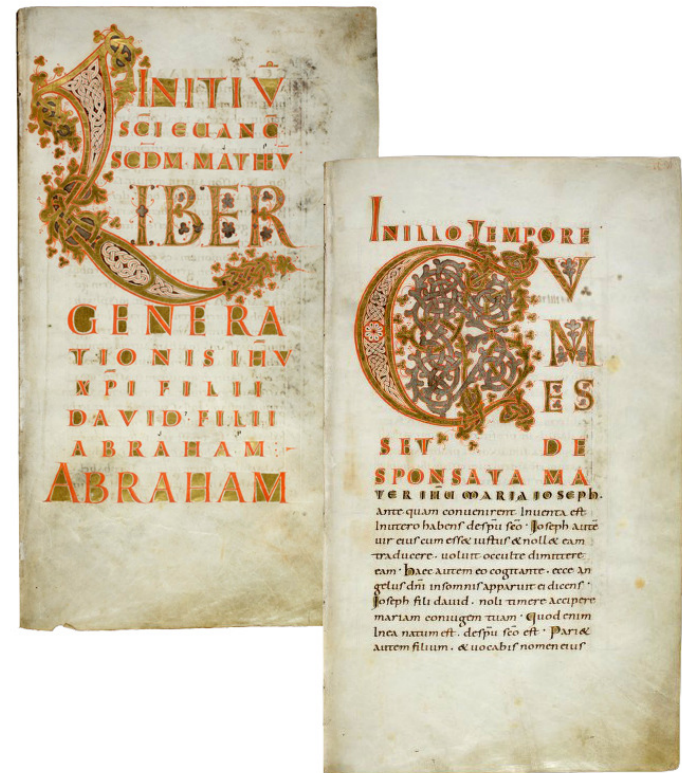 INITIV
SCI EUANG
SCDM·MATHV
LIBER
GENERA
TIONIS IHV
XPI FILII
DAVID·FILII
ABRAHAM·
ABRAHAM
IN ILLO TEMPORE
CVM
ES
SET DE
SPONSATA MA
TER IHU MARIA IOSEPH.
Ante quam convenirent Inventa est
Inutero habens despu sco · Joseph aute
vir eius cum esset iustus & nollet eam
traducere · voluit occulte dimittere
eam · haec autem eo cogitante · ecce an
gelus dni insomnis apparuit ei dicens ·
Joseph fili david · noli timere accipere
mariam coniugem tuam · Quod enim
Inea natum est · despu sco est · Pariet
autem filium · & vocabis nomen eius